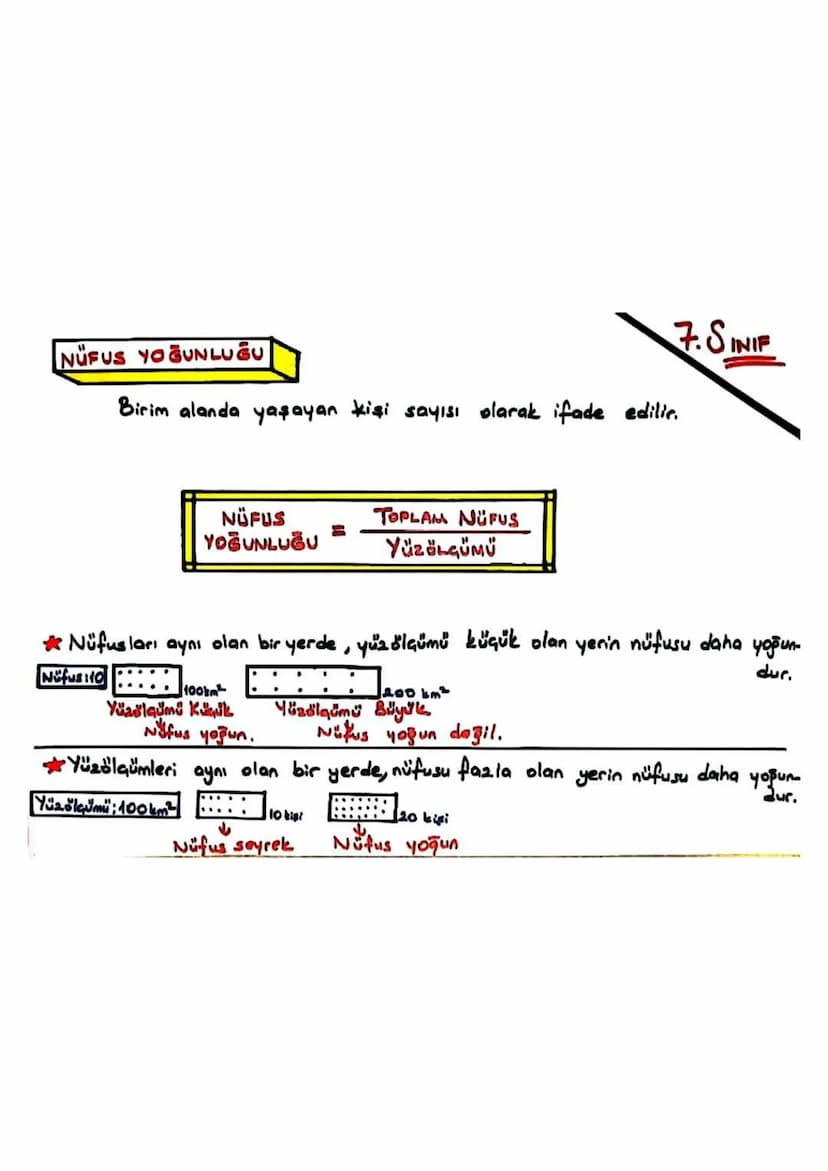 7. SINIF
NÜFUS YOĞUNLUĞU
Birim alanda yaşayan kişi sayısı olarak ifade edilir.
NÜFUS YOĞUNLUĞU = TOPLAM NÜFUS / YÜZÖLÇÜMÜ
★ Nüfusları aynı olan bir yerde, yüzölçümü küçük olan yerin nüfusu daha yoğun-
dur.
Nüfus:10 100km² 200 km²
Yüzölçümü Küçük Yüzölçümü Büyük
Nüfus yoğun. Nüfus yoğun değil.
★ Yüzölçümleri aynı olan bir yerde, nüfusu fazla olan yerin nüfusu daha yoğun-
dur.
Yüzölçümü; 100km² 10 kişi 20 kişi
Nüfus seyrek Nüfus yoğun